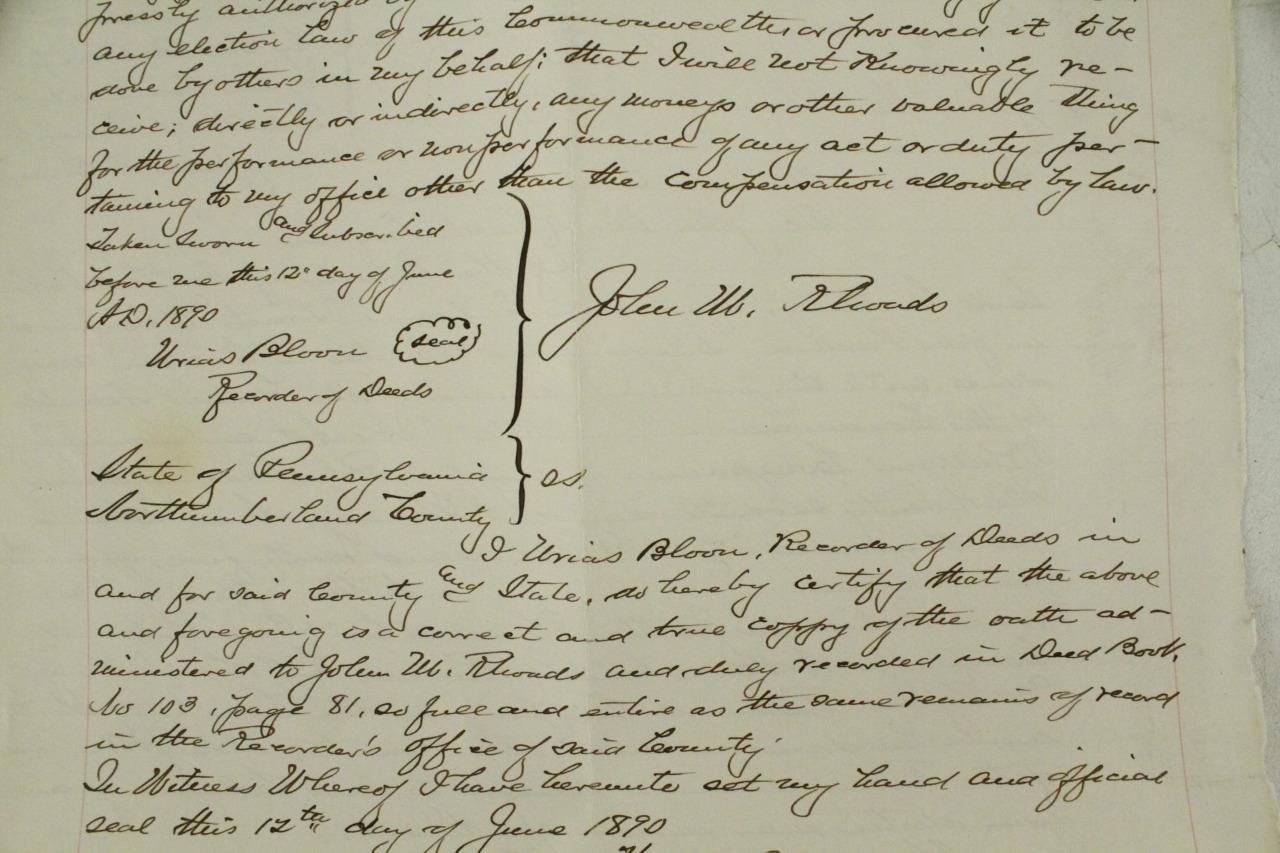 pressly authorized by
any election law of this Commonwealth or procured it to be
done by others in my behalf; that I will not Knowingly re-
ceive; directly or indirectly, any moneys or other valuable thing
for the performance or nonperformance of any act or duty per-
taining to my office other than the compensation allowed by law.
Taken Sworn and Subscribed
before me this 12" day of June
A.D. 1890
Urias Bloom
seal
Recorder of Deeds
John M. Rhoads
State of Pennsylvania
Northumberland County
ss.
I Urias Bloom, Recorder of Deeds in
and for said County and State, do hereby certify that the above
and foregoing is a correct and true coppy of the oath ad-
ministered to John M. Rhoads and duly recorded in Deed Book,
No 103, page 81, so full and entire as the same remains of record
in the Recorder's office of said County
In Witness Whereof I have hereunto set my hand and official
seal this 12th day of June 1890